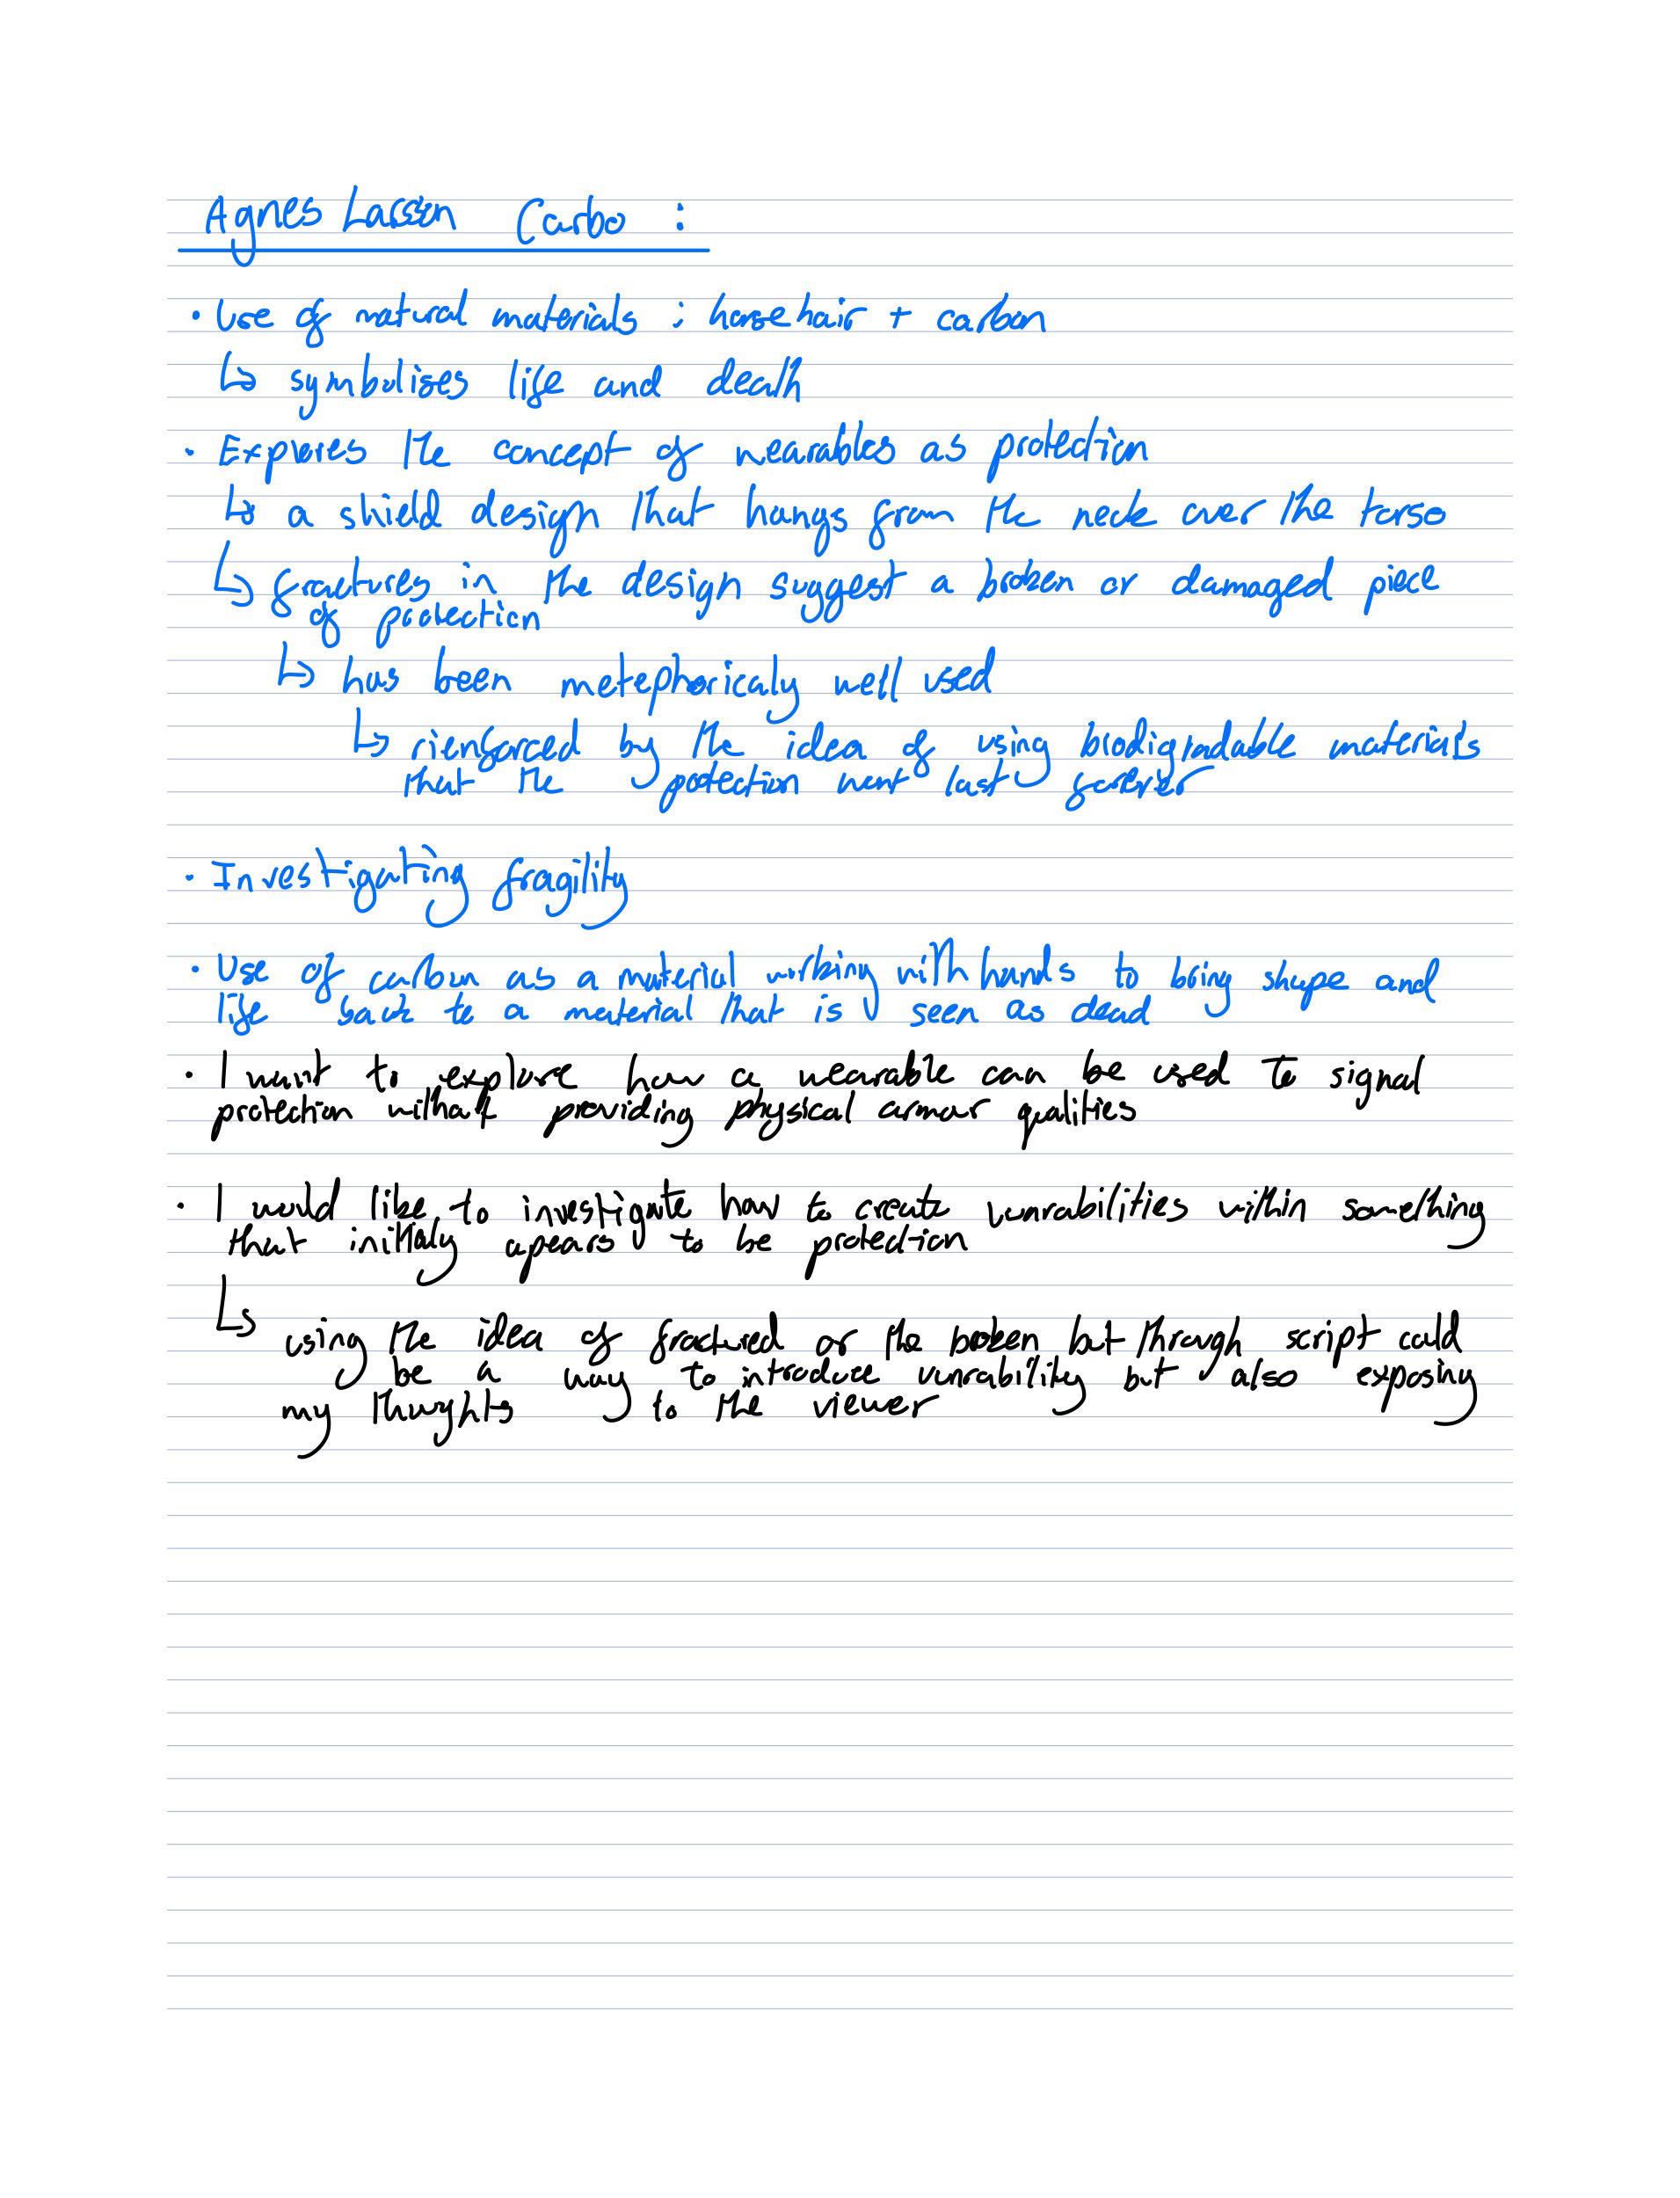 Agnes Larsson Carbo :
• Use of natural materials ; horse hair + carbon
↳ symbolises life and death
• Explores the concept of wearables as protection
↳ a shield design that hangs from the neck over the torso
↳ fractures in the design suggest a broken or damaged piece
of protection
↳ has been metephoricaly well used
↳ rienforced by the idea of using biodigradable materials
that the protection wont last forever
• Investigating fragility
• Use of carbon as a material working with hands to bring shape and
life back to a material that is seen as dead
• I want to explore how a wearable can be used to signal
protection without providing physical armour qualities
• I would like to investigate how to create vunrabilities within something
that initialy apears to be protection
↳
using the idea of fractured or the broken but through script could
be a way to introduce vunrability but also exposing
my thoughts to the viewer